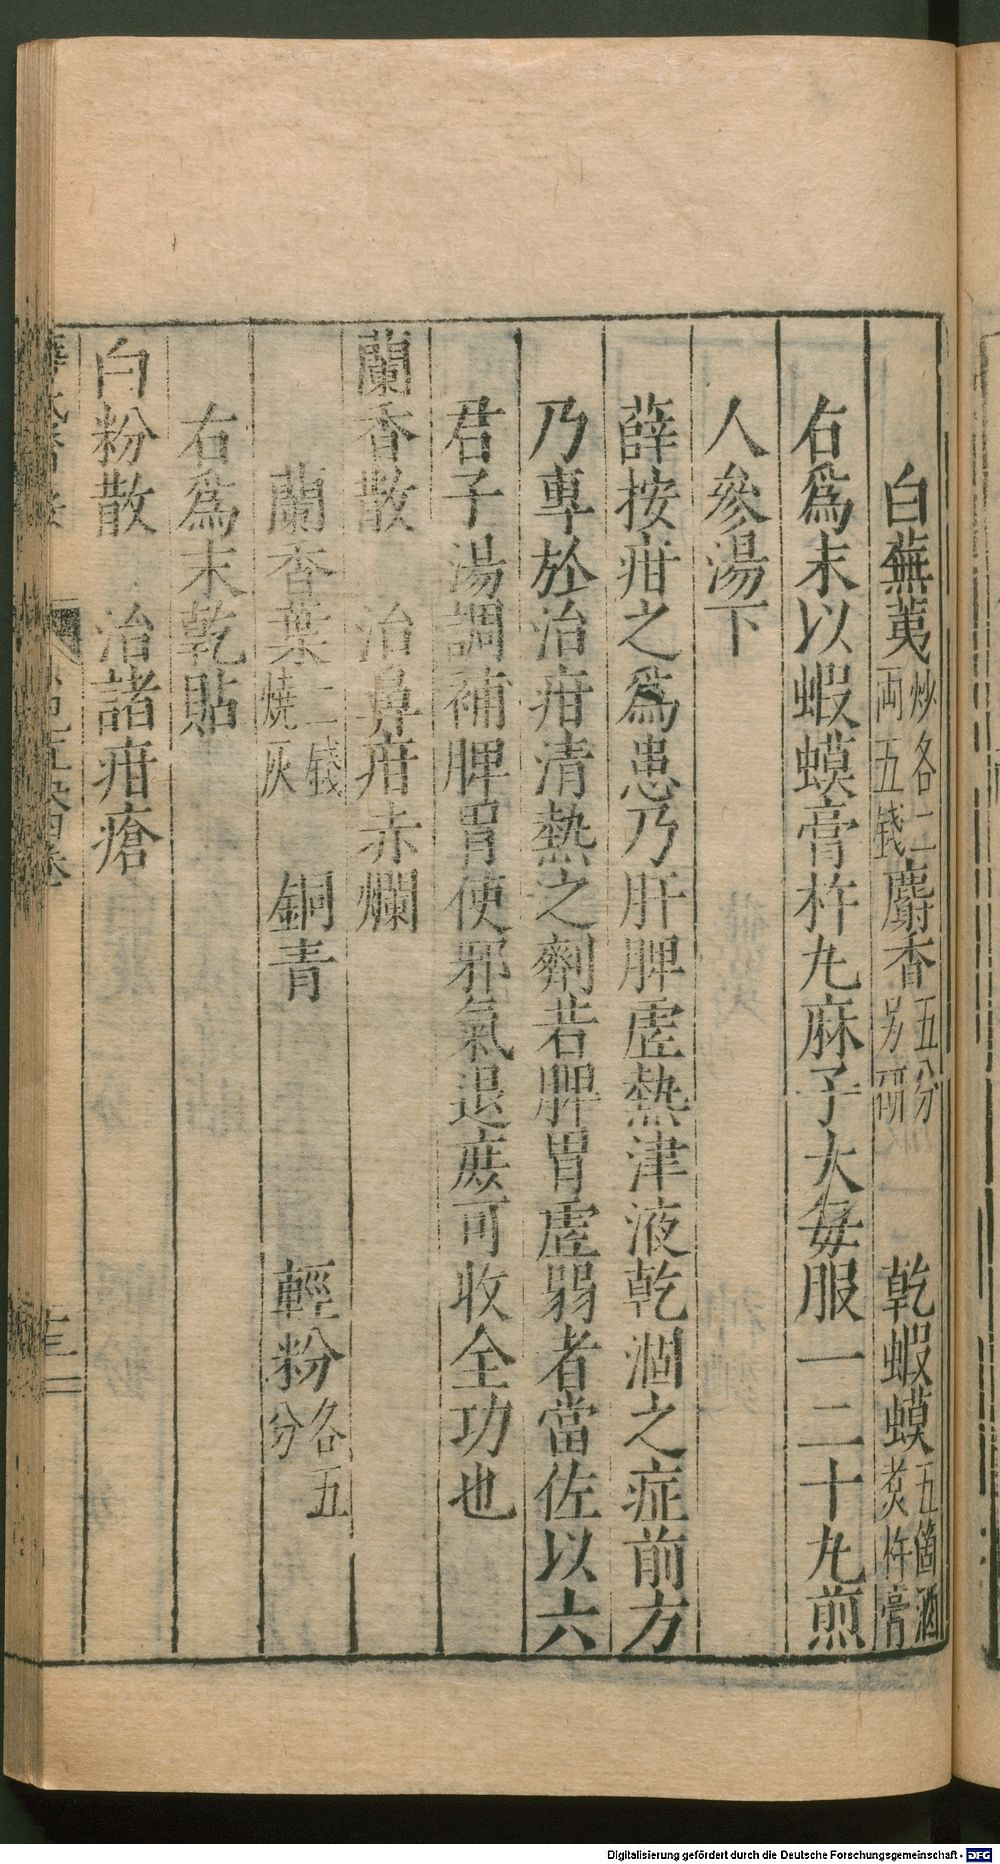 白蕪荑炒各二両五錢麝香五分另研 乾蝦蟆五箇酒煮杵膏
右爲末以蝦蟆膏杵丸麻子大每服一二十丸煎
人參湯下
薛按疳之爲患乃肝脾虛熱津液乾涸之症前方
乃專於治疳清熱之劑若脾胃虛弱者當佐以六
君子湯調補脾胃使邪氣退庶可收全功也
蘭香散 治鼻疳赤爛
蘭香葉二錢燒灰 銅青 輕粉各五分
右爲末乾貼
白粉散 治諸疳瘡
Digitalisierung gefördert durch die Deutsche Forschungsgemeinschaft - DFG